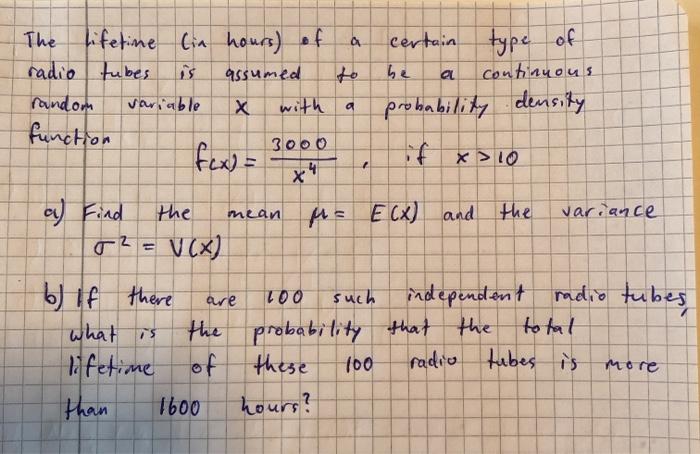 The lifetime (in hours) of a certain type of
radio tubes is assumed to be a continuous
random variable X with a probability density
function
f(x) = 3000/x⁴, if x > 10
a) Find the mean μ = E(X) and the variance
σ² = V(X)
b) If there are 100 such independent radio tubes,
what is the probability that the total
lifetime of these 100 radio tubes is more
than 1600 hours?